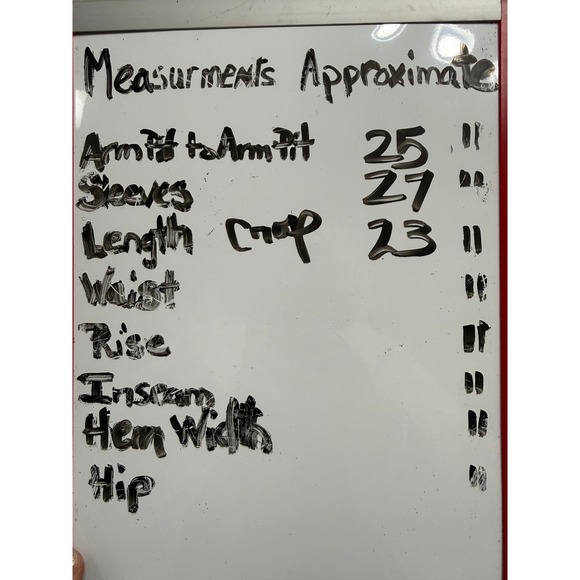 Measurments Approximate
Armpit to Armpit 25 "
Sleeves 27 "
Length Crop 23 "
Waist "
Rise "
Inseam "
Hem Width "
Hip "